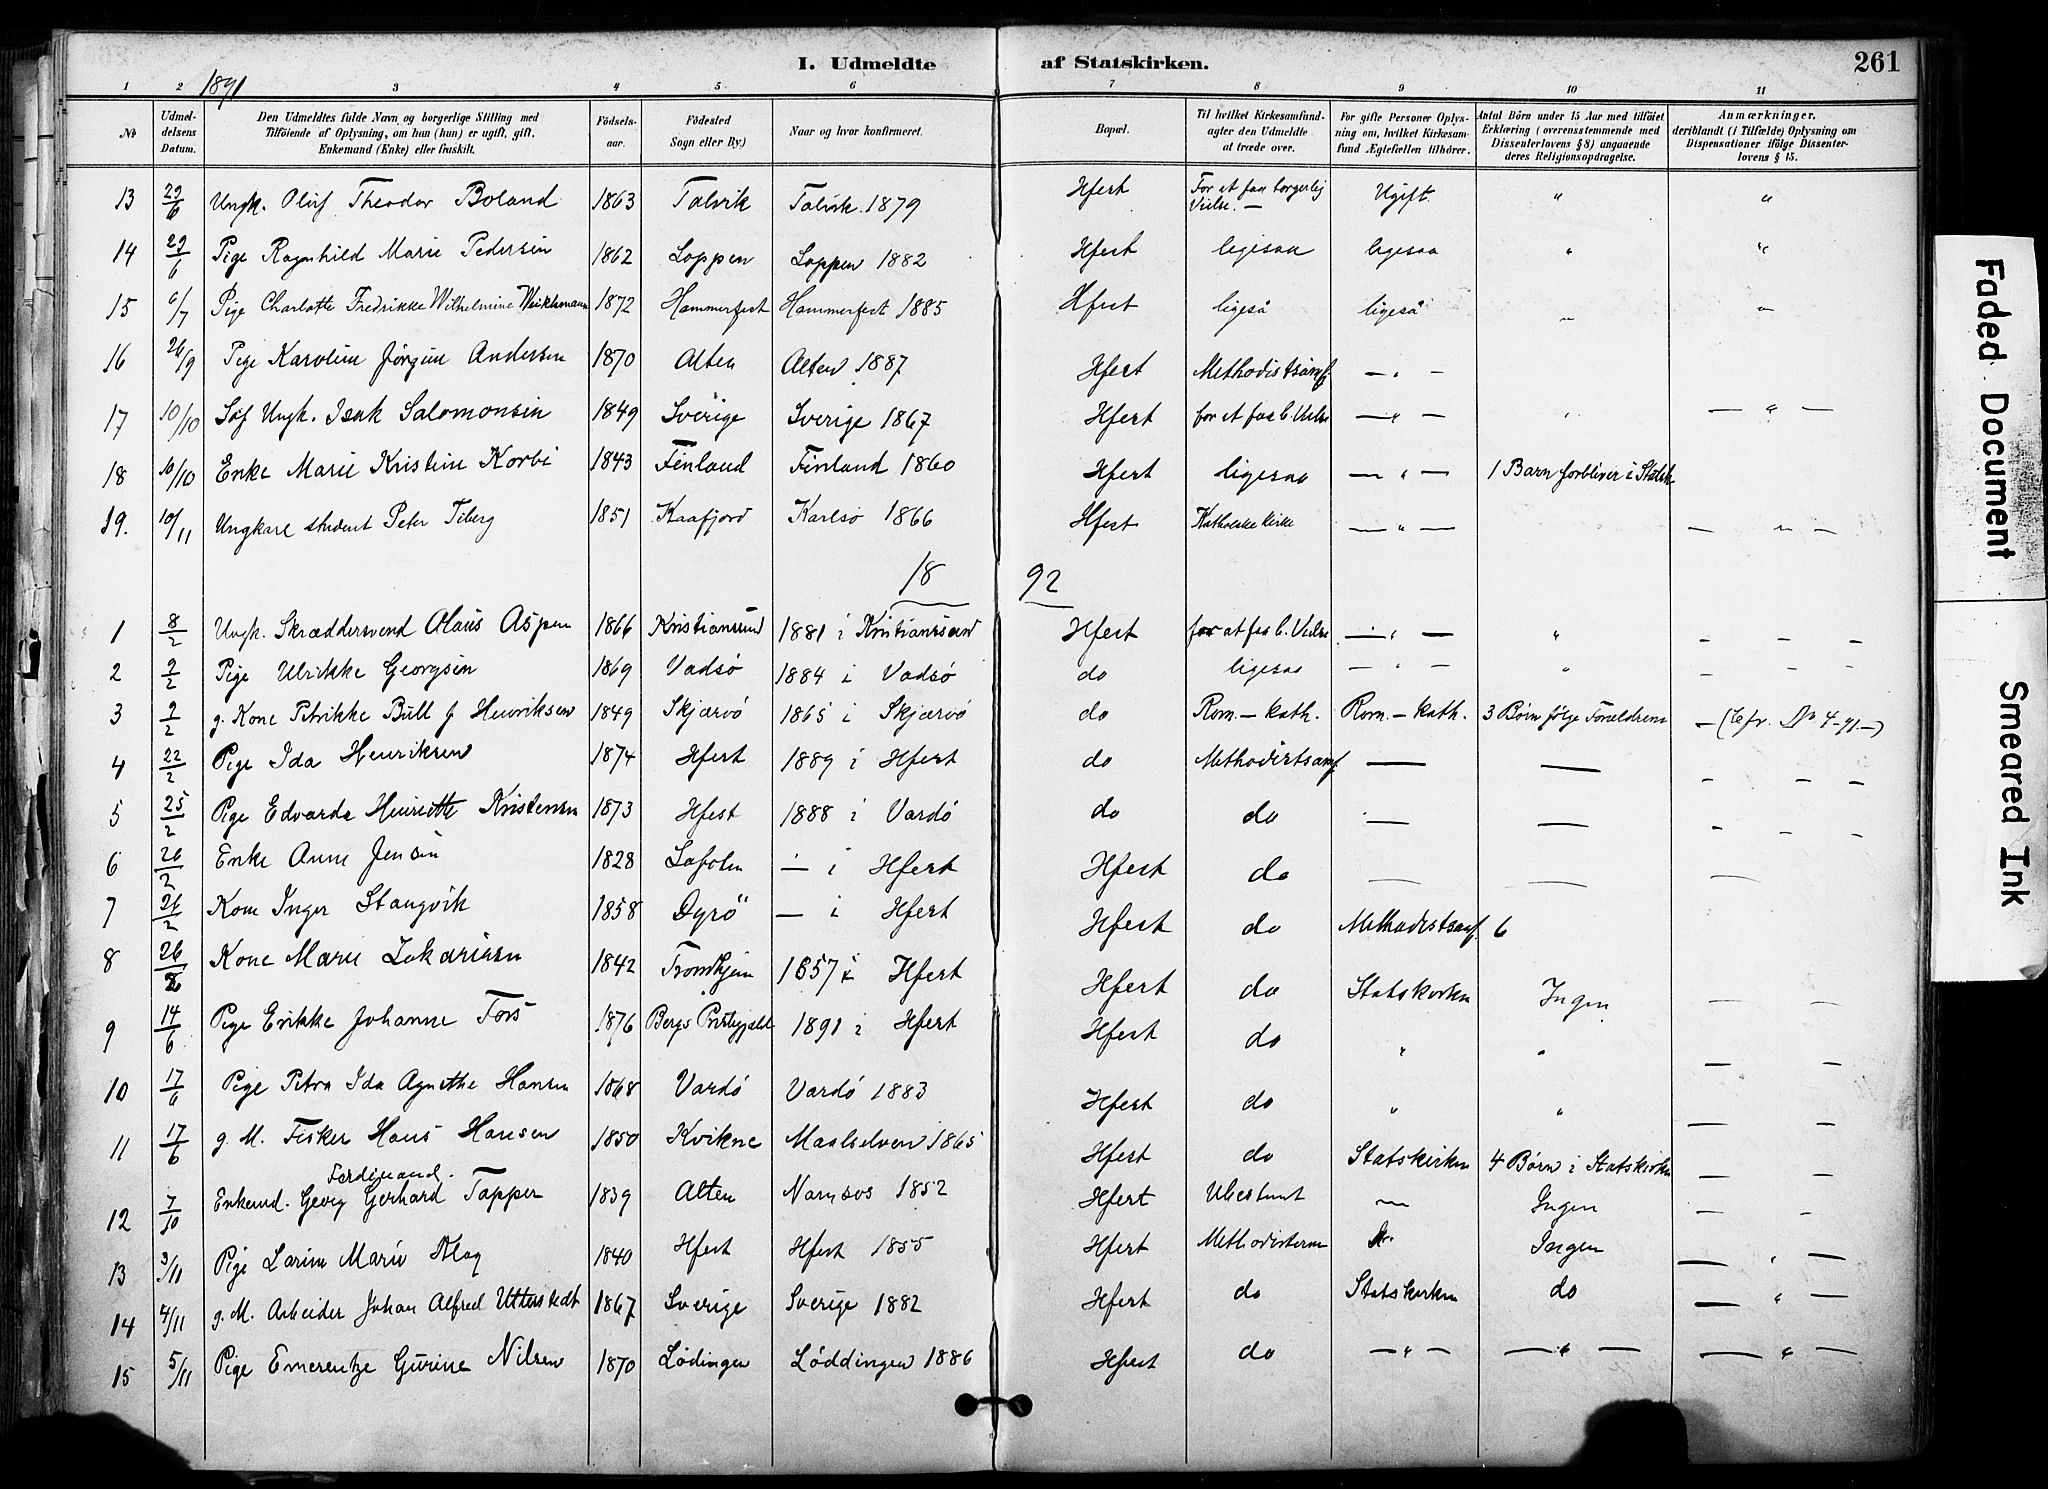 I. Udmeldte af Statskirken. 261
1891
1 2 3 4 5 6 7 8 9 10 11
No Udmeldelsens Datum. Den Udmeldtes fulde Navn og borgerlige Stilling med Tilföiende af Oplysning, om han (hun) er ugift, gift, Enkemand (Enke) eller fraskilt. Födselsaar. Födested Sogn eller By.) Naar og hvor konfirmeret. Bopæl. Til hvilket Kirkesamfund agter den Udmeldte at træde over. For gifte Personer Oplysning om, hvilket Kirkesamfund Ægtefællen tilhörer. Antal Börn under 15 Aar med tilföiet Erklæring (overensstemmende med Dissenterlovens § 8) angaaende deres Religionsopdragelse. Anmærkninger, deriblandt (i Tilfælde) Oplysning om Dispensationer ifölge Dissenterlovens § 15.
13 29/6 Ungk. Oluf Theodor Boland 1863 Talvik Talvik 1879 Hfest For at faa borgerlig Vielse. — Ugift. " "
14 29/6 Pige Ragnhild Marie Pedersen 1862 Loppen Loppen 1882 Hfest ligesaa ligesaa " "
15 6/7 Pige Charlotte Fredrikke Wilhelmine 1872 Hammerfest Hammerfest 1885 Hfest ligeså ligeså " "
16 26/9 Pige Karoline Jörgine Andersen 1870 Alten Alten 1887 Hfest Methodistsamf. — " —
17 10/10 Söf Ungk. Isak Salomonsen 1849 Sverige Sverige 1867 Hfest for at faa b. Vielse — " — " — " —
18 10/10 Enke Marie Kristine Korbi 1843 Finland Finland 1860 Hfest ligesaa — " — 1 Barn forbliver i Statsk
19. 10/11 Ungkarl student Peter Tiberg 1851 Kaafjord Karlsö 1866 Hfest Katholske kirke — " — — " —
18 92
1 8/2 Ungk. Skræddersvend Olaus Aspen 1866 Kristiansund 1881 i Kristianssund Hfest for at faa b. Vielse — " — " — — —
2 9/2 Pige Ulrikke Georgsen 1869 Vadsö 1884 i Vadsö do ligesaa — " — " — — —
3 9/2 g. Kone Petrikke Bull f Henriksen 1849 Skjærvö 1865 i Skjærvö do Rom. — kath. Rom. — kath. 3 Børn følge Forældrene — (Cfr. No 4-91.—)
4 22/2 Pige Ida Henriksen 1874 Hfest 1889 i Hfest do Methodistsamf. — — — — —
5 25/2 Pige Edvarda Henriette Kristensen 1873 Hfest 1888 i Vardö do do — — — — —
6 26/2 Enke Anne Jensen 1828 Lofoten — i Hfest Hfest do — — —
7 26/2 Kone Inger Stangvik 1858 Dyrö — i Hfest Hfest do Methodistsamf. 6
8 26/2 Kone Marie Zakariasen 1842 Trondhjem 1857 i Hfest Hfest do Statskirken Ingen — —
9 14/6 Pige Erikke Johanne Fors 1876 Bergs Præstegjeld 1891 i Hfest Hfest do " " — —
10 17/6 Pige Petra Ida Agnethe Hansen 1868 Vardö Vardö 1883 Hfest do " " — —
11 17/6 g. M. Fisker Hans Hansen 1850 Kvikne Maalselven 1865 Hfest do Statskirken 4 Børn i Statskirken — —
12 7/10 Enkemd. Georg Gerhard Ferdinand. Tapper 1839 Alten Namsos 1852 Hfest Ubestemt — Ingen — —
13 3/11 Pige Larine Marie Klog 1840 Hfest Hfest 1855 Hfest Methodisterne Ingen — " —
14 4/11 g. M. Arbeider Johan Alfred Utterstedt 1867 Sverige Sverige 1882 Hfest do Statskirken do — " —
15 5/11 Pige Emerentze Gurine Nilsen 1870 Lödingen Löddingen 1886 Hfest do — " — — " — — " —
Faded Document
Smeared Ink